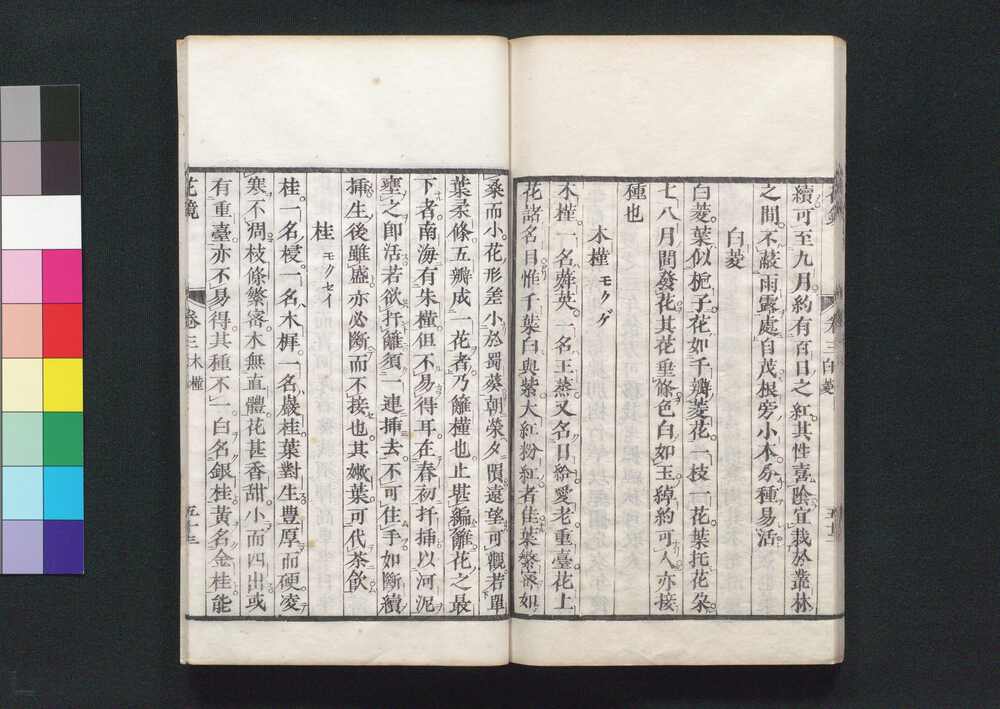 續可至九月約有百日之紅其性喜陰宜栽於叢林
之間不蔽雨露處自茂根旁小本分種易活
白菱
白菱葉似梔子花如千瓣菱花一枝一花葉托花朶
七八月間發花其花垂條色白如玉綽約可人亦接
種也
木槿 モクゲ
木槿一名蕣英一名王蒸又名日給愛老重臺花上
花諸名目惟千葉白與紫大紅粉紅者佳葉繁密如
桑而小花形差小於蜀葵朝榮夕隕遠望可觀若單
葉柔條五瓣成一花者乃籬槿也止堪編籬花之最
下者南海有朱槿但不易得耳在春初扦插以河泥
壅之卽活若欲扦籬須一連插去不可住手如斷續
插生後雖盛亦必斷而不接也其嫩葉可代茶飮
桂 モクセイ
桂一名梫一名木樨一名巖桂葉對生豊厚而硬凌
寒不凋枝條繁密木無直體花甚香甜小而四出或
有重臺亦不易得其種不一白名銀桂黃名金桂能
花鏡
卷三木槿
五十三